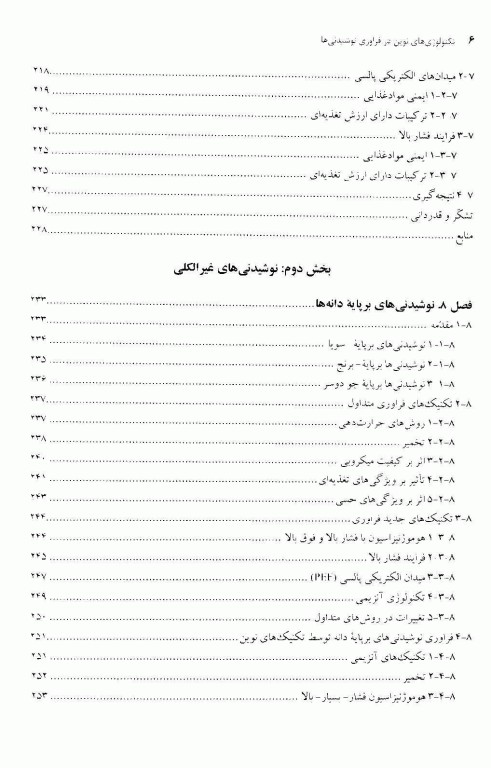 ۶ تکنولوژی‌های نوین در فراوری نوشیدنی‌ها
۷-۲ میدان‌های الکتریکی پالسی ........ ۲۱۸
۷-۲-۱ ایمنی موادغذایی ........ ۲۱۹
۷ ۲-۲ ترکیبات دارای ارزش تغذیه‌ای ........ ۲۲۱
۷-۳ فرایند فشار بالا ........ ۲۲۴
۷-۳-۱ ایمنی موادغذایی ........ ۲۲۵
۷ ۳-۲ ترکیبات دارای ارزش تغذیه‌ای ........ ۲۲۵
۷ ۴ نتیجه‌گیری ........ ۲۲۷
تشکّر و قدردانی ........ ۲۲۷
منابع ........ ۲۲۸
بخش دوم: نوشیدنی‌های غیرالکلی
فصل ۸ـ نوشیدنی‌های برپایهٔ دانه‌ها ........ ۲۳۳
۸-۱ مقدّمه ........ ۲۳۳
۸-۱-۱ نوشیدنی‌های برپایهٔ سویا ........ ۲۳۴
۸-۱-۲ نوشیدنی‌ها برپایهٔ-برنج ........ ۲۳۵
۸-۱ ۳ نوشیدنی‌ها برپایهٔ جو دوسر ........ ۲۳۶
۸-۲ تکنیک‌های فراوری متداول ........ ۲۳۷
۸-۲-۱ روش‌های حرارت‌دهی ........ ۲۳۷
۸-۲-۲ تخمیر ........ ۲۳۸
۸-۲-۳ اثر بر کیفیت میکروبی ........ ۲۴۰
۸-۲-۴ تأثیر بر ویژگی‌های تغذیه‌ای ........ ۲۴۱
۸-۲-۵ اثر بر ویژگی‌های حسی ........ ۲۴۳
۸-۳ تکنیک‌های جدید فراوری ........ ۲۴۴
۸ ۳ ۱ هوموژنیزاسیون با فشار بالا و فوق بالا ........ ۲۴۴
۸-۳-۲ فرایند فشار بالا ........ ۲۴۵
۸-۳-۳ میدان الکتریکی پالسی (PEF) ........ ۲۴۷
۸-۳-۴ تکنولوژی آنزیمی ........ ۲۴۹
۸-۳-۵ تغییرات در روش‌های متداول ........ ۲۵۰
۸-۴ فراوری نوشیدنی‌های برپایهٔ دانه توسط تکنیک‌های نوین ........ ۲۵۱
۸-۴-۱ تکنیک‌های آنزیمی ........ ۲۵۱
۸-۴-۲ تخمیر ........ ۲۵۲
۸-۴-۳ هوموژنیزاسیون فشار-بسیار-بالا ........ ۲۵۳